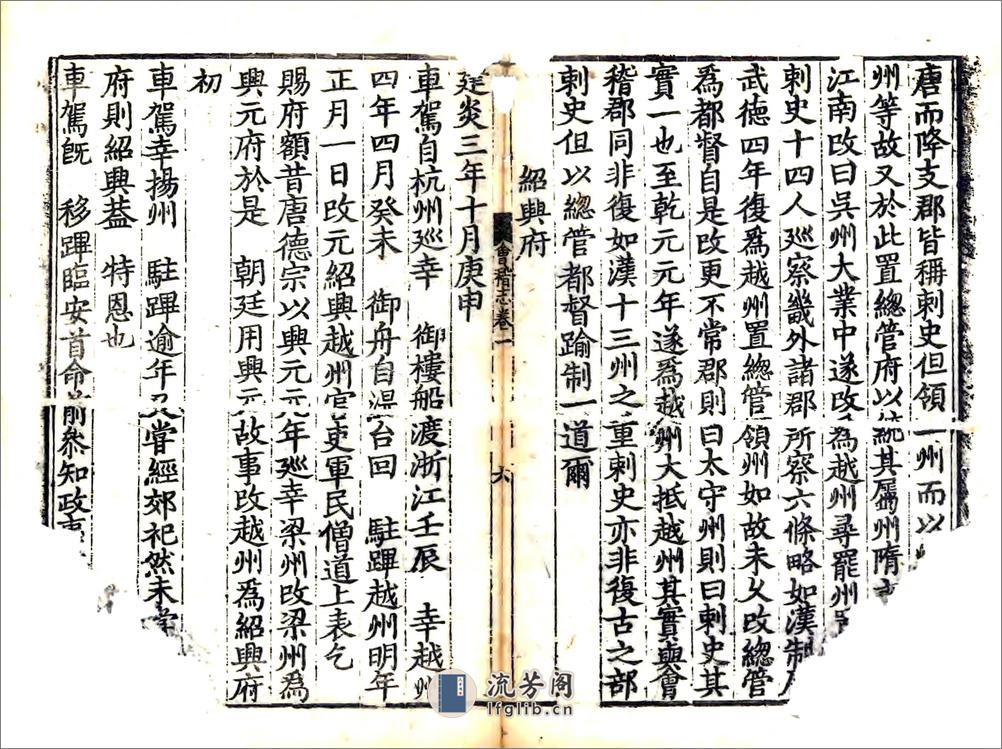 唐而降支郡皆稱刺史但領一州而以
州等故又於此置總管府以統其屬州隋
江南改曰吳州大業中遂改爲越州尋罷州
刺史十四人巡察畿外諸郡所察六條略如漢制
武德四年復爲越州置總管領州如故未久改總管
爲都督自是改更不常郡則曰太守州則曰刺史其
實一也至乾元元年遂爲越州大抵越州其實與會
稽郡同非復如漢十三州之重刺史亦非復古之部
刺史但以總管都督踰制一道爾
紹興府
會稽志卷一
六
建炎三年十月庚申
車駕自杭州巡幸 御樓船渡浙江壬辰 幸越州
四年四月癸未 御舟自溫台回 駐蹕越州明年
正月一日改元紹興越州官吏軍民僧道上表乞
賜府額昔唐德宗以興元元年巡幸梁州改梁州爲
興元府於是 朝廷用興元故事改越州爲紹興府
初
車駕幸揚州 駐蹕逾年又嘗經郊祀然未
府則紹興葢 特恩也
車駕旣 移蹕臨安首命前參知政
流芳阁
lfglib.cn